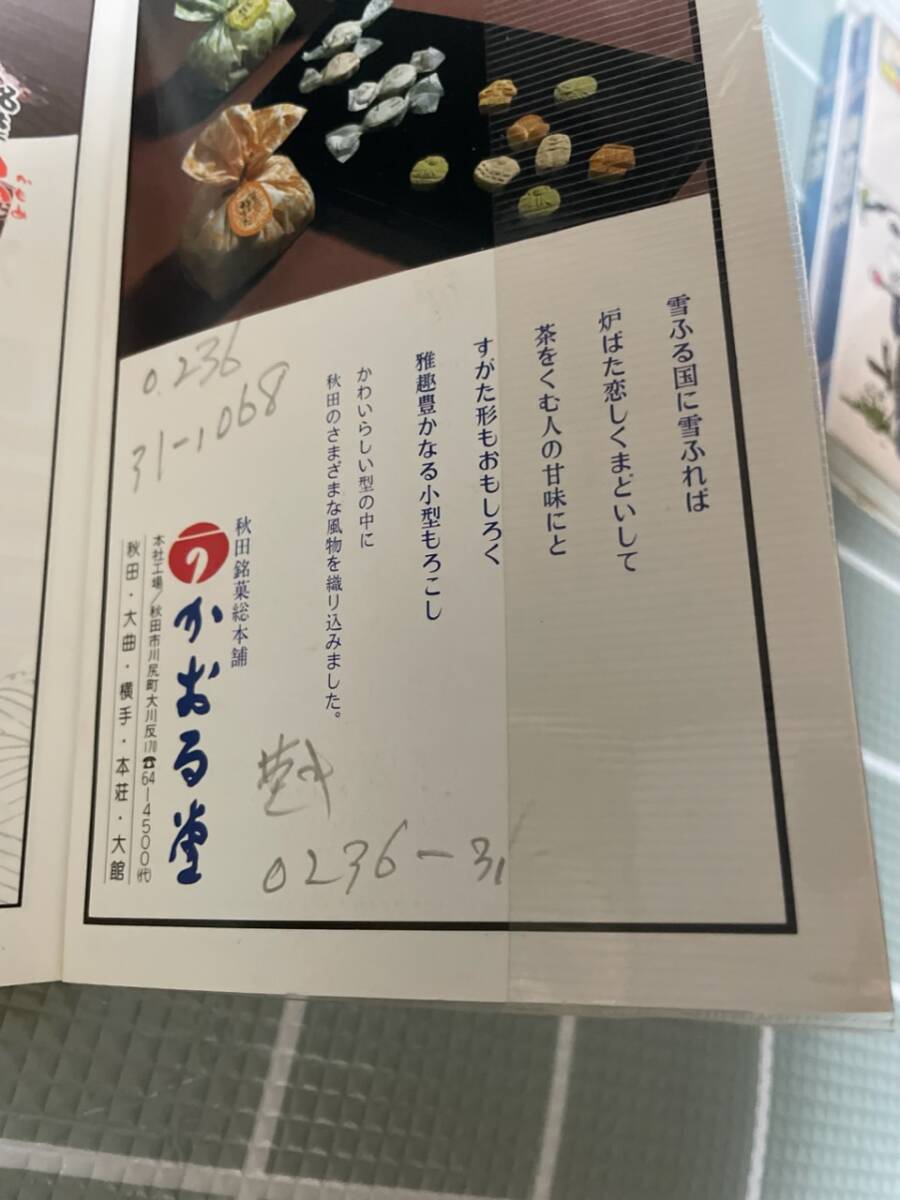 雪ふる国に雪ふれば
炉ばた恋しくまどいして
茶をくむ人の甘味にと
すがた形もおもしろく
雅趣豊かなる小型もろこし
かわいらしい型の中に
秋田のさまざまな風物を織り込みました。
秋田銘菓総本舗
かおる堂
本社工場/秋田市川尻町大川反170☎64-4500㈹
秋田・大曲・横手・本荘・大館
0.236
31-1068
0236-31